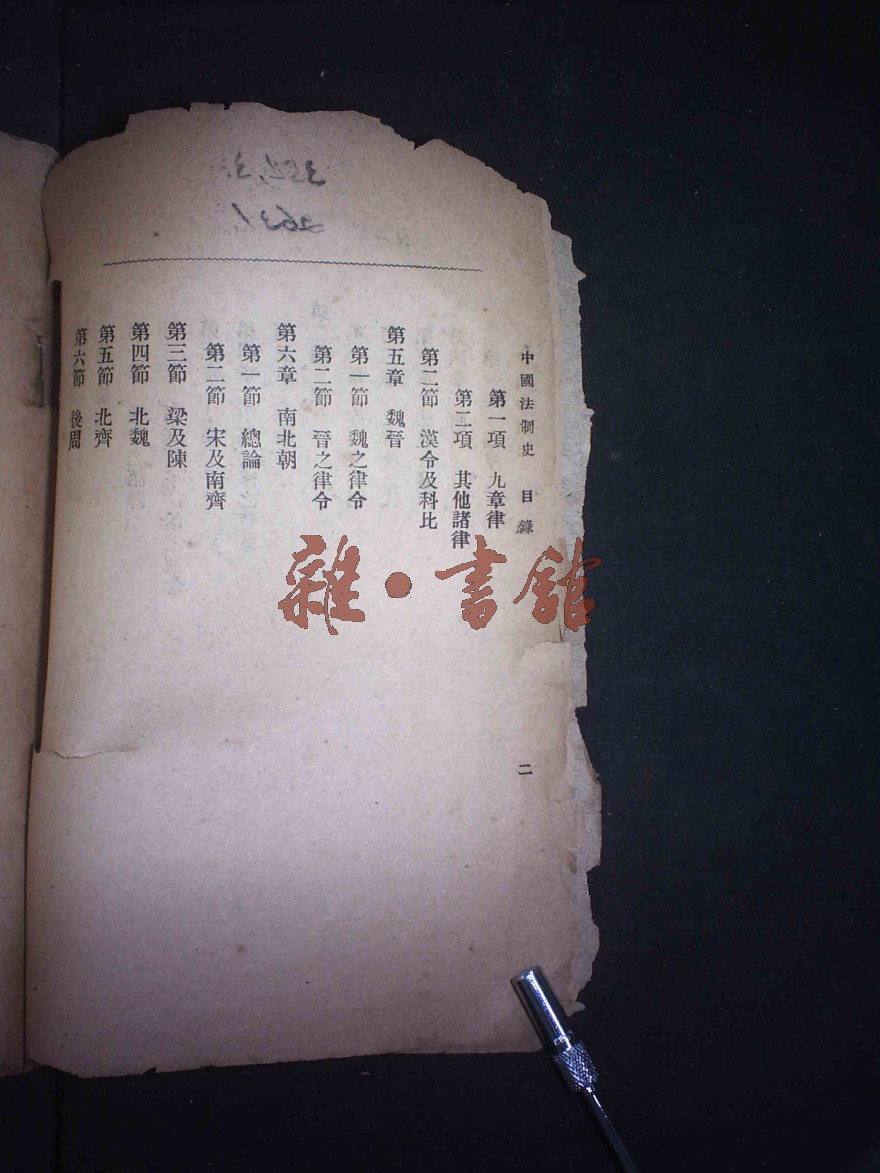 中國法制史 目錄
二
第一項 九章律
第二項 其他諸律
第二節 漢令及科比
第五章 魏晉
第一節 魏之律令
第二節 晉之律令
第六章 南北朝
第一節 總論
第二節 宋及南齊
第三節 梁及陳
第四節 北魏
第五節 北齊
第六節 後周
雜·書館